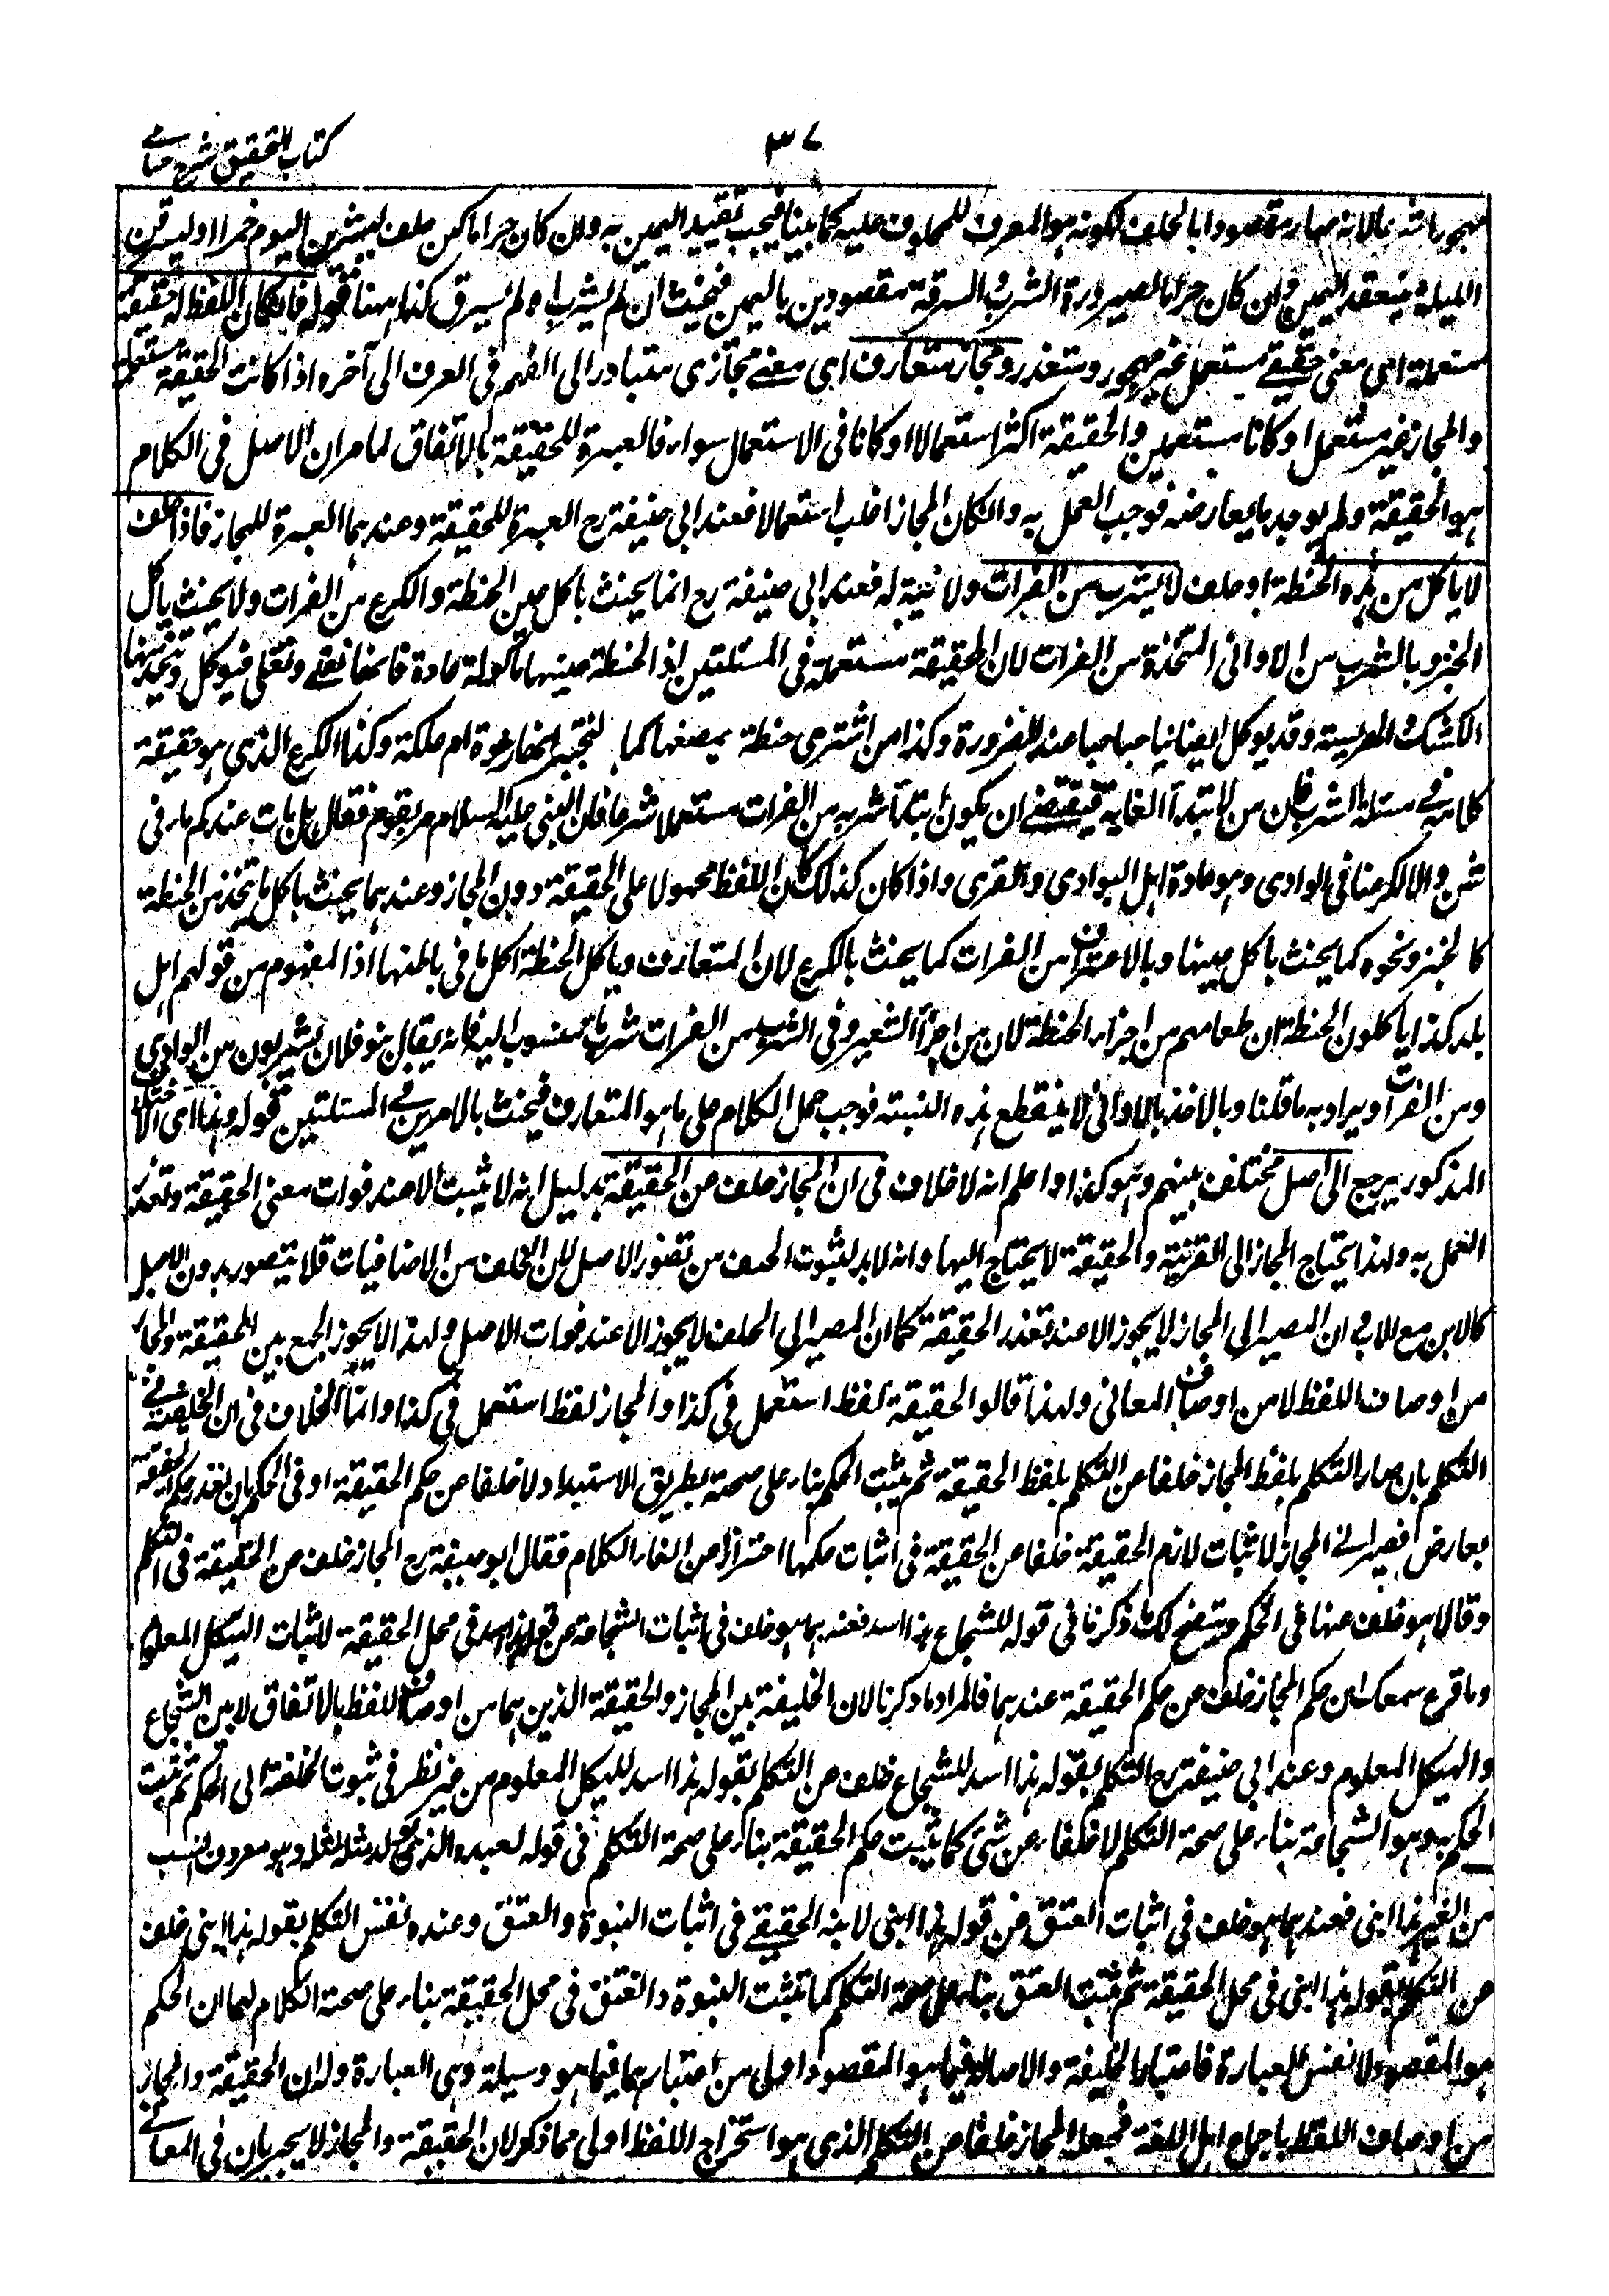 كتاب التحقيق شرح حسامي
٣٧
مهجورا شرعا لانه صار مقصودا بالحلف لكونه هو المعرف للمحلوف عليه كما بينا فيجب تقييد اليمين به وان كان حراما كمن حلف ليشربن اليوم خمرا او ليسرقن
الليلة ينعقد اليمين وان كان حراما لصيرورة الشرب والسرقة مقصودين باليمين فيحنث ان لم يشرب او لم يسرق كذا ههنا قوله فان كان اللفظ له حقيقة
مستعملة اى معنى حقيقي مستعمل غير مهجور ومتعذر ومجاز متعارف اى معنى مجازى متبادر الى الفهم فى العرف الى آخره اذا كانت الحقيقة مستعملة
والمجاز غير مستعمل او كانا مستعملين والحقيقة اكثر استعمالا او كانا فى الاستعمال سواء فالعبرة للحقيقة بالاتفاق لما مر ان الاصل فى الكلام
هو الحقيقة ولم يوجد ما يعارضه فوجب العمل به وان كان المجاز اغلب استعمالا فعند ابى حنيفة رح العبرة للحقيقة وعندهما العبرة للمجاز فاذا حلف
لا ياكل من هذه الحنطة او حلف لا يشرب من الفرات ولا نية له فعند ابى حنيفة رح انما يحنث باكل عين الحنطة والكرع من الفرات ولا يحنث باكل
الخبز وبالشرب من الاوانى المتخذة من الفرات لان الحقيقة مستعملة فى المسئلتين اذ الحنطة عينها ماكولة عادة فانها تقلى وتغلى فيوكل ويتخذ منها
الكشك والهريسة وقد يوكل ايضا نيا حبا حبا عند الضرورة وكذا من اشترى حنطة يمضغها كما لتجربتها رخوة ام علكة وكذا الكرع الذى هو حقيقة
كلامه فى مسئلة الشرب لان من لابتداء الغاية فيقتضى ان يكون ابتداء شربه من الفرات مستعملا شرعا فان النبى عليه السلام مر بقوم فقال هل بات عندكم ماء فى
شن والا لكرعنا فى الوادى وهو عادة اهل البوادى والقرى واذا كان كذلك كان اللفظ محمولا على الحقيقة دون المجاز وعندهما يحنث باكل ما يتخذ من الحنطة
كالخبز ونحوه كما يحنث باكل عينها وبالاغتراف من الفرات كما يحنث بالكرع لان المتعارف وباكل الحنطة اكل ما فى باطنها اذ المفهوم من قولهم اهل
بلد كذا ياكلون الحنطة ان طعامهم من اجزاء الحنطة لا من اجزاء الشعير وفى الشرب من الفرات شرب ماء منسوب اليه فانه يقال بنو فلان يشربون من الوادى
ومن الفرات ويراد به ما قلنا وبالاخذ بالاوانى لا ينقطع هذه النسبة فوجب حمل الكلام على ما هو المتعارف فيحنث بالامرين فى المسئلتين قوله وهذا اى الاختلاف
المذكور يرجع الى اصل مختلف بينهم وهو كذا واعلم انه لا خلاف فى ان المجاز خلف عن الحقيقة بدليل انه لا يثبت الا عند فوات معنى الحقيقة وتعذر
العمل به ولهذا يحتاج المجاز الى القرينة والحقيقة لا يحتاج اليها وانه لا بد لثبوت الخلف من تصور الاصل لان الخلف من الاضافيات فلا يتصور بدون الاصل
كالابن مع الاب فى ان المصير الى المجاز لا يجوز الا عند تعذر الحقيقة كما ان المصير الى الخلف لا يجوز الا عند فوات الاصل ولهذا لا يجوز الجمع بين الحقيقة والمجاز
من اوصاف اللفظ لا من اوصاف المعانى ولهذا قالوا الحقيقة لفظ استعمل فى كذا والمجاز لفظ استعمل فى كذا وانما الخلاف فى ان الخلفية فى
التكلم بان صار التكلم بلفظ المجاز خلفا عن التكلم بلفظ الحقيقة ثم يثبت الحكم بناء على صحته بطريق الاستبداد لا خلفا عن حكم الحقيقة او فى الحكم بان تعذر حكم الحقيقة
بعارض فصير الى المجاز لاثبات لازم الحقيقة خلفا عن الحقيقة فى اثبات حكمها احترازا عن الغاء الكلام فقال ابو حنيفة رح المجاز خلف عن الحقيقة فى التكلم
وقالا هو خلف عنها فى الحكم ويتضح لك ما ذكرنا فى قوله للشجاع هذا اسد فعندهما هو خلف فى اثبات الشجاعة عن قوله هذا اسد فى محل الحقيقة لاثبات الهيكل المعلوم
وما قرع سمعك ان حكم المجاز خلف عن حكم الحقيقة عندهما فالمراد ما ذكرنا لان الخلفية بين المجاز والحقيقة الذين هما من اوصاف اللفظ بالاتفاق لا بين الشجاع
والهيكل المعلوم وعند ابى حنيفة رح التكلم بقوله هذا اسد للشجاع خلف عن التكلم بقوله هذا اسد للهيكل المعلوم من غير نظر فى ثبوت الخلفية الى الحكم ثم يثبت
الحكم به وهو الشجاعة بناء على صحة التكلم لا خلفا عن شئ كما يثبت حكم الحقيقة بناء على صحة التكلم فى قوله لعبده الذى يولد مثله لمثله وهو معروف النسب
من الغير هذا ابنى فعندهما هو خلف فى اثبات العتق عن قوله هذا ابنى لابنه الحقيقي فى اثبات البنوة والعتق وعنده نفس التكلم بقوله هذا ابنى خلف
عن التكلم بقوله هذا ابنى فى محل الحقيقة ثم يثبت العتق بناء على صحة التكلم كما تثبت البنوة والعتق فى محل الحقيقة بناء على صحة الكلام لهما ان الحكم
هو المقصود لا نفس العبارة فاعتبار الخلفية والاصالة فيما هو المقصود اولى من اعتبارهما فيما هو وسيلة وهى العبارة وله ان الحقيقة والمجاز
من اوصاف اللفظ باجماع اهل اللغة فجعل المجاز خلفا عن التكلم الذى هو استخراج اللفظ اولى مما ذكر لان الحقيقة والمجاز لا يجريان فى المعانى